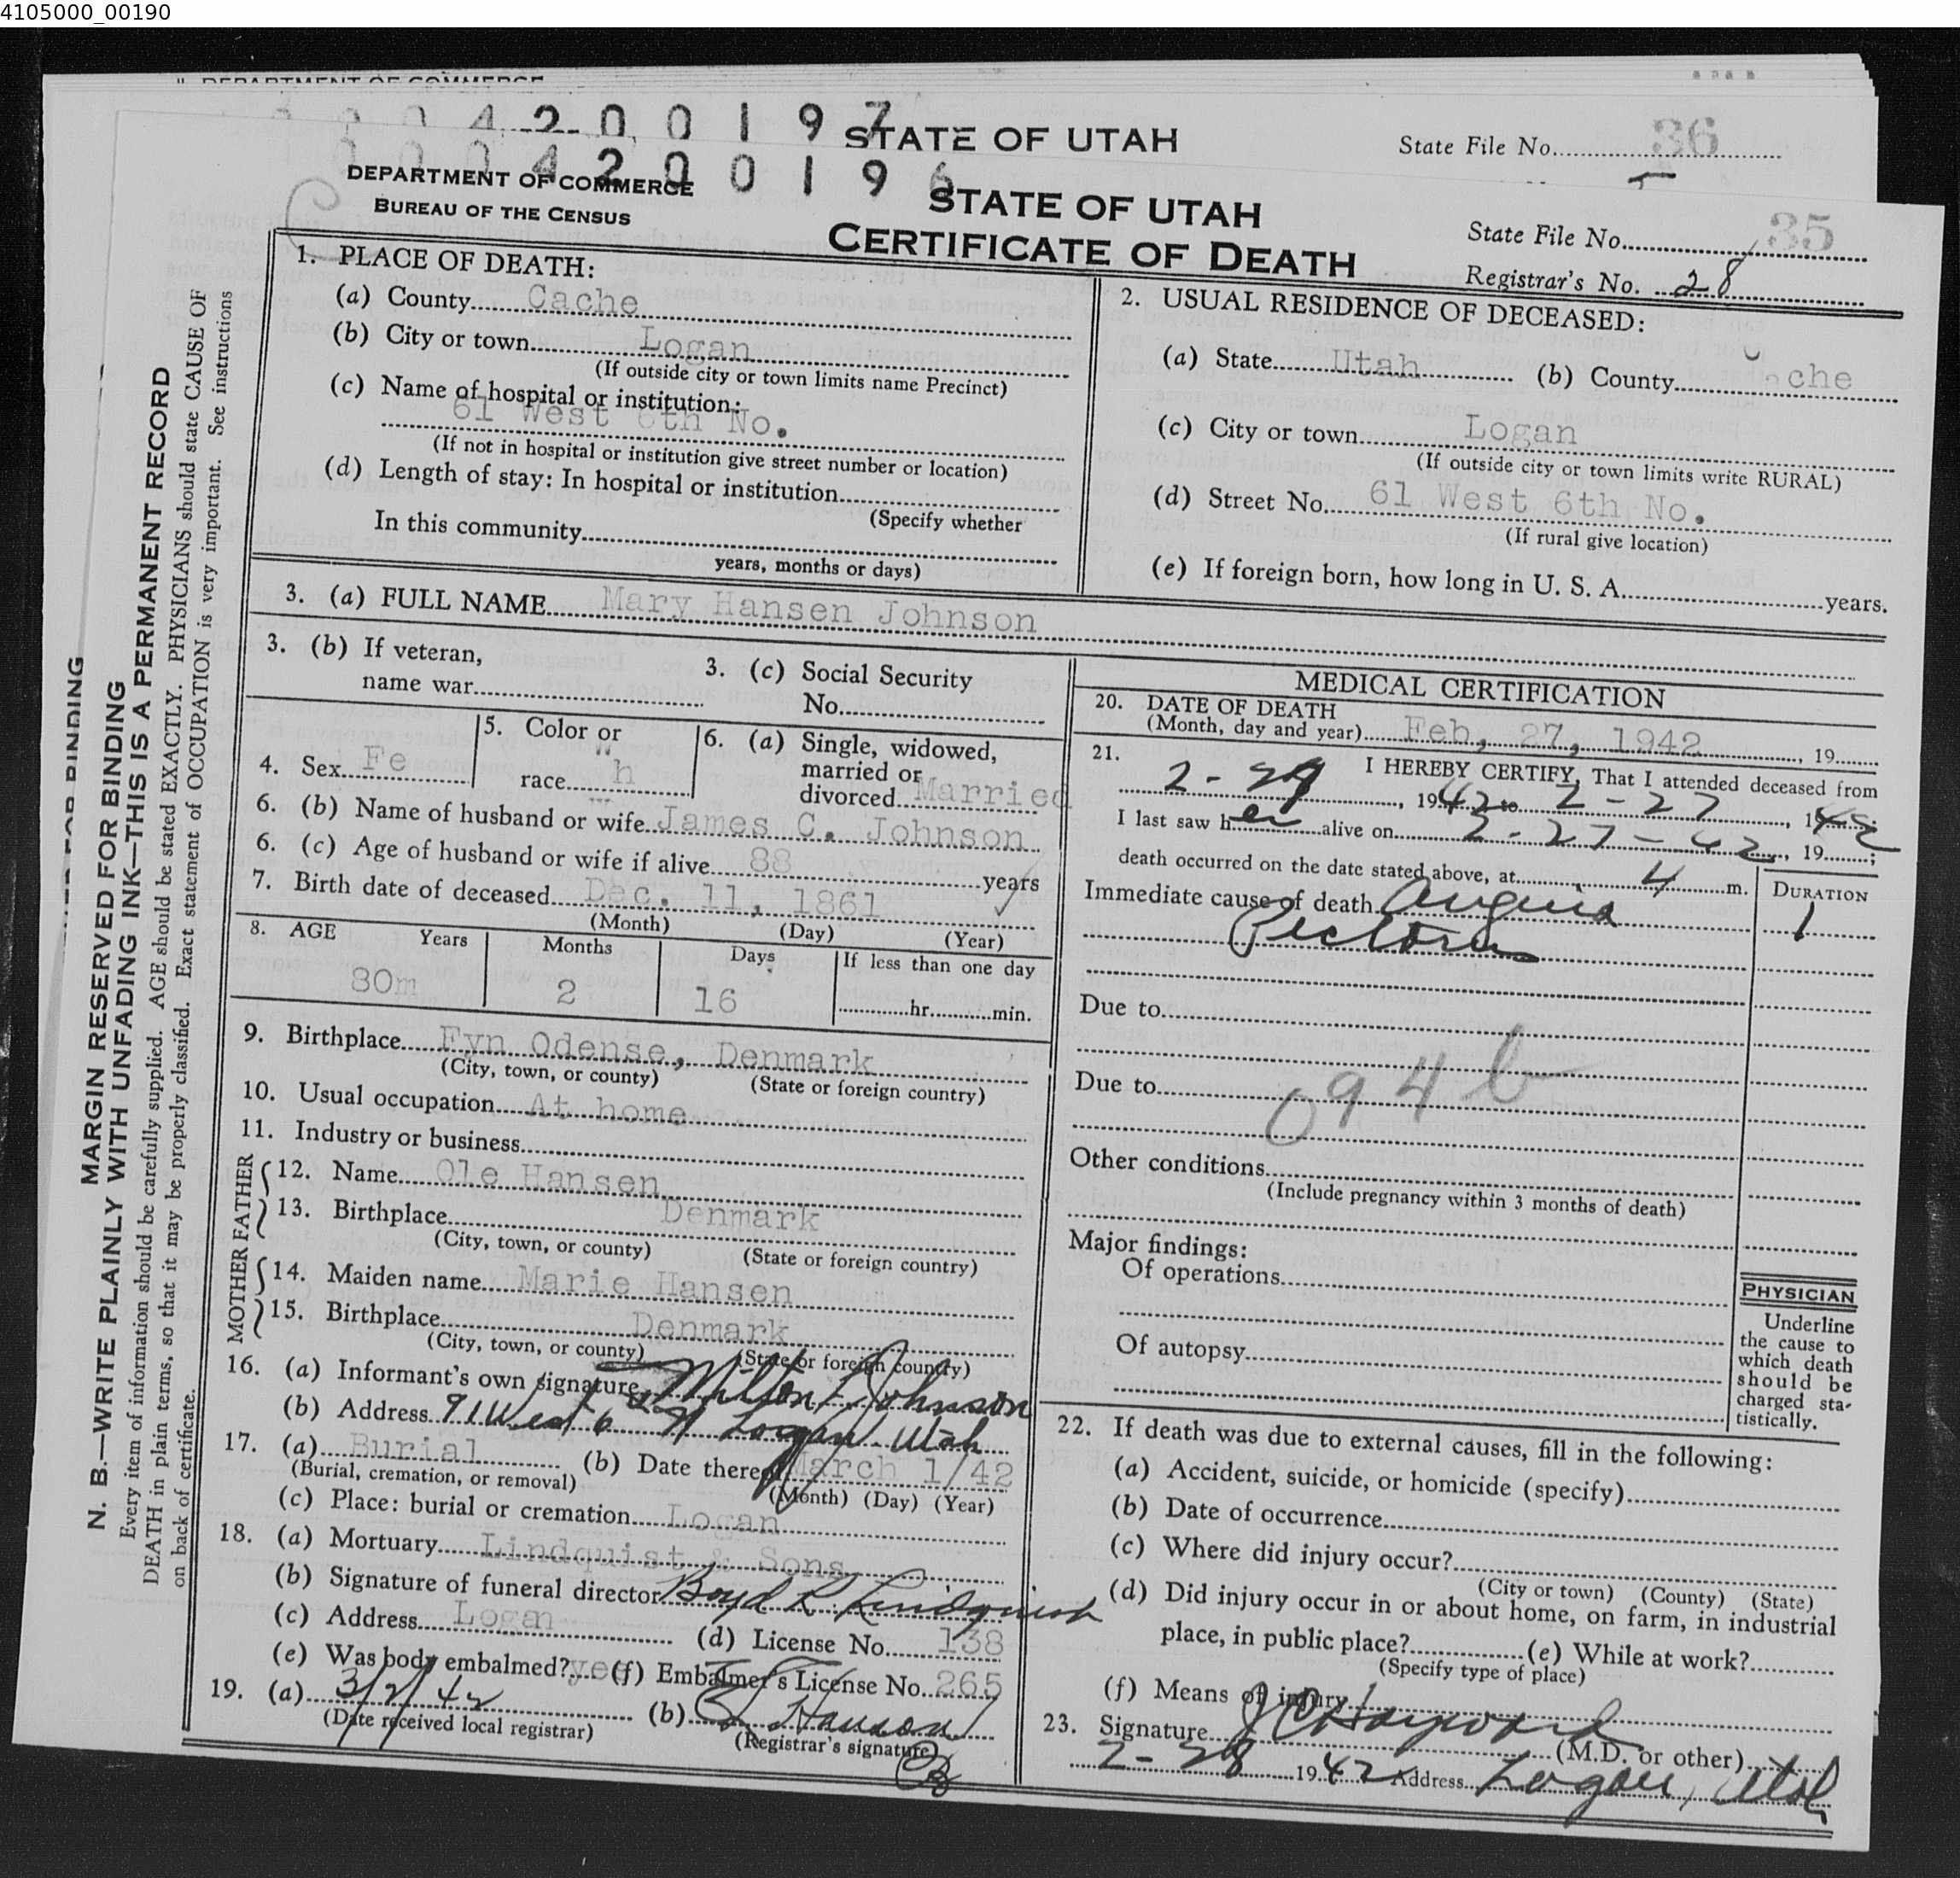 4105000_00190
DEPARTMENT OF COMMERCE
0 0 4 2 0 0 1 9 7
STATE OF UTAH
State File No. 36
0 0 0 4 2 0 0 1 9 6
DEPARTMENT OF COMMERCE
BUREAU OF THE CENSUS
STATE OF UTAH
CERTIFICATE OF DEATH
State File No. 35
Registrar's No. 28
MARGIN RESERVED FOR BINDING
N. B.—WRITE PLAINLY WITH UNFADING INK—THIS IS A PERMANENT RECORD
Every item of information should be carefully supplied. AGE should be stated EXACTLY. PHYSICIANS should state CAUSE OF
DEATH in plain terms, so that it may be properly classified. Exact statement of OCCUPATION is very important. See instructions
on back of certificate.
1. PLACE OF DEATH:
(a) County Cache
(b) City or town Logan
(If outside city or town limits name Precinct)
(c) Name of hospital or institution:
61 West 6th No.
(If not in hospital or institution give street number or location)
(d) Length of stay: In hospital or institution
(Specify whether
In this community
years, months or days)
2. USUAL RESIDENCE OF DECEASED:
(a) State Utah (b) County Cache
(c) City or town Logan
(If outside city or town limits write RURAL)
(d) Street No. 61 West 6th No.
(If rural give location)
(e) If foreign born, how long in U. S. A. years.
3. (a) FULL NAME Mary Hansen Johnson
3. (b) If veteran,
name war
3. (c) Social Security
No.
4. Sex Fe
5. Color or
race Wh
6. (a) Single, widowed,
married or
divorced Married
6. (b) Name of husband or wife James C. Johnson
6. (c) Age of husband or wife if alive 88 years
7. Birth date of deceased Dec. 11, 1861
(Month) (Day) (Year)
8. AGE Years Months Days If less than one day
80m 2 16 hr. min.
9. Birthplace Fyn Odense, Denmark
(City, town, or county) (State or foreign country)
10. Usual occupation At home
11. Industry or business
FATHER
12. Name Ole Hansen
13. Birthplace Denmark
(City, town, or county) (State or foreign country)
MOTHER
14. Maiden name Marie Hansen
15. Birthplace Denmark
(City, town, or county) (State or foreign country)
16. (a) Informant's own signature Milton Johnson
(b) Address 91 West 6 N Logan Utah
17. (a) Burial (b) Date thereof March 1/42
(Burial, cremation, or removal) (Month) (Day) (Year)
(c) Place: burial or cremation Logan
18. (a) Mortuary Lindquist & Sons
(b) Signature of funeral director Boyd R Lindquist
(c) Address Logan (d) License No. 138
(e) Was body embalmed? yes (f) Embalmer's License No. 265
19. (a) 3/2/42 (b) Hanson
(Date received local registrar) (Registrar's signature)
MEDICAL CERTIFICATION
20. DATE OF DEATH
(Month, day and year) Feb, 27, 1942, 19
21. I HEREBY CERTIFY, That I attended deceased from
1942 to 2-27, 1942
I last saw her alive on 2-27-42, 19 ;
death occurred on the date stated above, at 4 m.
DURATION
Immediate cause of death Angina
Pectoris
1
Due to
Due to
094b
Other conditions
(Include pregnancy within 3 months of death)
Major findings:
Of operations
Of autopsy
PHYSICIAN
Underline
the cause to
which death
should be
charged sta-
tistically.
22. If death was due to external causes, fill in the following:
(a) Accident, suicide, or homicide (specify)
(b) Date of occurrence
(c) Where did injury occur?
(City or town) (County) (State)
(d) Did injury occur in or about home, on farm, in industrial
place, in public place? (e) While at work?
(Specify type of place)
(f) Means of injury
23. Signature J C Hayward (M.D. or other)
2-28 1942 Address Logan, Utah